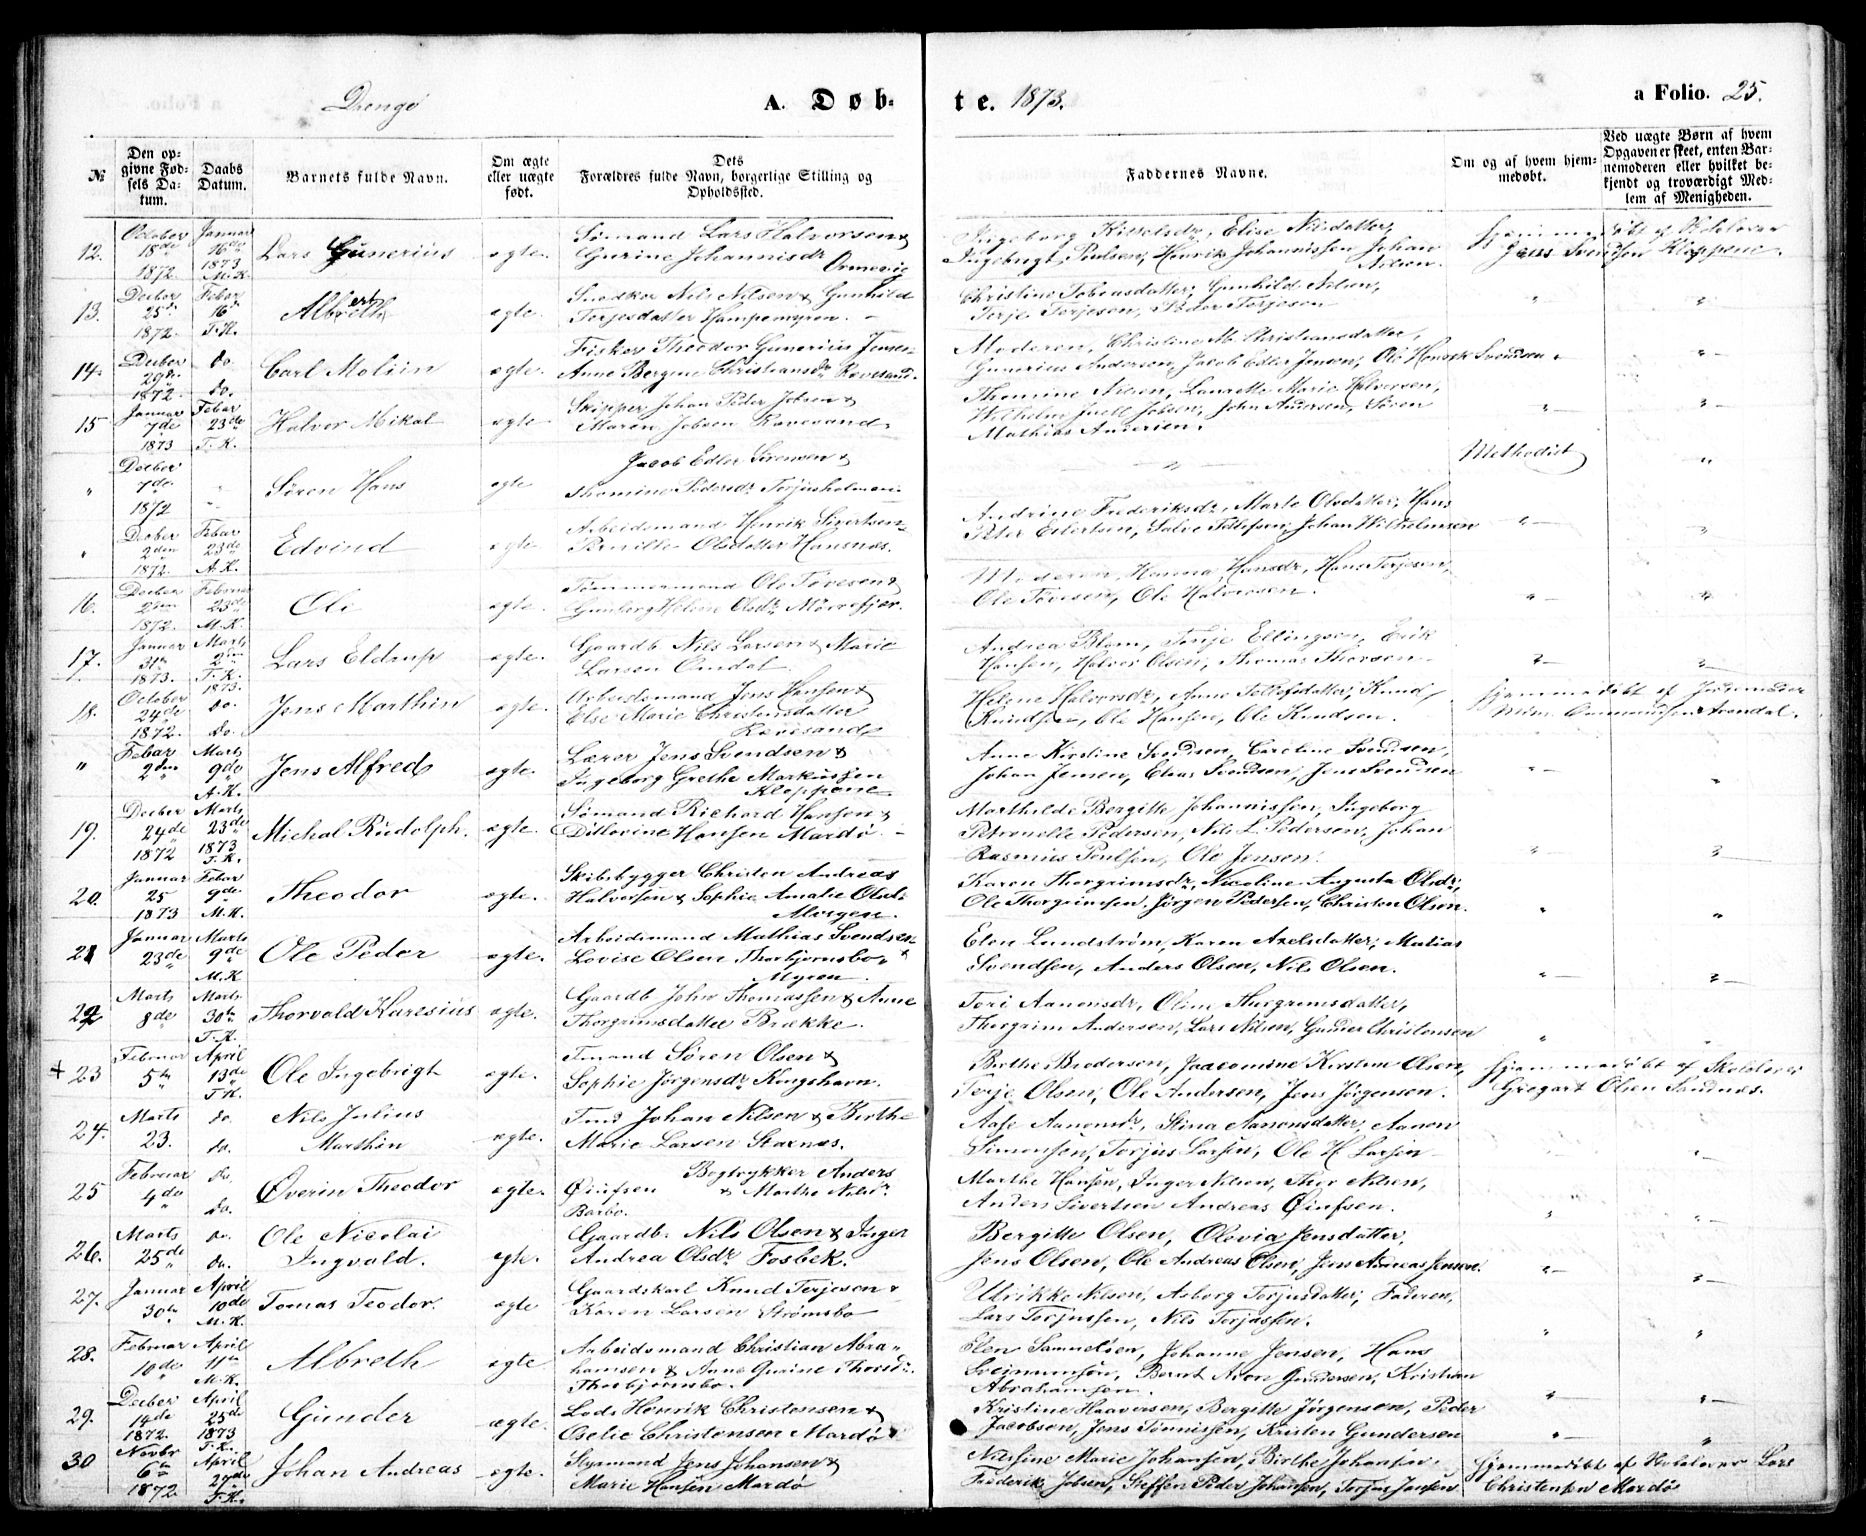 Drenge
A. Døb-
te. 1873.
a Folio. 25.
№
Den op-
givne Fød-
sels Da-
tum.
Daabs
Datum.
Barnets fulde Navn.
Om ægte
eller uægte
født.
Dets
Forældres fulde Navn, borgerlige Stilling og
Opholdssted.
Faddernes Navne.
Om og af hvem hjem-
medøbt.
Ved uægte Børn af hvem
Opgaven er skeet, enten Bar-
nemoderen eller hvilket be-
kjendt og troværdigt Med-
lem af Menigheden.
12.
October
18de
1872.
Januar
16de
1873
M.K.
Lars Gunerius
ægte.
Sømand Lars Halvorsen &
Gurine Johannisdr
Ormevig
Elise Nilsdatter,
Ingebregt Poulsen, Henrik Johannissen Johan
Nilsen.
Hjemmedøbt af Skolelærer
Jens Svendsen Kloppene.
13.
Decber
25de
1872.
Febar
16de
T.K.
Albreth
ægte.
Snedker Nils Nilsen & Gunhild
Torjesdatter Hampemyren.
Christine Tobiasdatter, Gunhild Nilsen,
Terje Torjesen, Peder Torjesen
14.
Decber
29de
1872.
do.
do.
Carl Moliin
ægte.
Fisker Theodor Gunerius Jensen
Anne Bergine Christiansdr Revesand.
Moderen, Christine M. Christiansdatter,
Gunerius Andersen, Jacob Edler Jensen, Ole Henrik Svendsen.
15
Januar
7de
1873
Febar
23de
T.K.
Halvor Mikal
ægte
Skipper Johan Peder Jobsen &
Maren Jobsen Revesand.
Thomine Nilsen, Laurette Marie Halvorsen,
Wilhelm Juell Jobsen, John Andersen, Søren
Mathias Andersen.
"
Decber
7de
1872
Søren Hans
ægte
Jacob Edler Sørensen &
Thomine Pedersdr Torjusholmen.
Methodist
"
Decber
2den
1872.
Febar
23de
A.K.
Edvind
ægte.
Arbeidsmand Henrik Sivertsen
Pernille Olsdatter Hansnæs.
Andrine Frederiksdr, Marte Olsdatter, Hans
Peter Eilertsen, Salve Tellefsen, Johan Wilhelmsen
16.
Decber
2den
1872.
Februar
23de
M.K.
Ole
ægte.
Tømmermand Ole Tovesen &
Gunborg Helene Olsdr Mørefjær.
Moderen, Hanna Hansdr, Hans Torjesen,
Ole Tovesen, Ole Halvorsen.
17.
Januar
31te
1873.
Marts
2den
T.K.
1873.
Lars Eldrup
ægte.
Gaardb. Nils Larsen & Marie
Larsen Omdal
Andrea Blom, Tonje Ellingsen, Erik
Hansen, Halvor Olsen, Thomas Thorsen
18.
October
24de
1872.
do.
do.
Jens Marthin
ægte.
Arbeidsmand Jens Hansen &
Else Marie Christensdatter
Revesand
Helene Halvorsdr, Anne Tellefsdatter, Knud
Knudsen, Ole Hansen, Ole Knudsen.
Hjemmedøbt af Jordemoder
Arendal.
"
Febar
2den
Marts
9de
A.K.
Jens Alfred
ægte.
Lærer Jens Svendsen &
Ingeborg Grethe Markussen
Kloppene
Anne Kirstine Svendsen, Caroline Svendsen,
Johan Jensen, Elias Svendsen, Jens Svendsen
19.
Decber
24de
1872
Marts
23de
1873
T.K.
Michal Rudolph.
ægte.
Sømand Richard Hansen &
Ditlovine Hansen Mardø.
Marthilde Bergitte Johannissen, Ingeborg
Petronelle Pedersen, Nils L. Pedersen, Johan
Rasmus Poulsen, Ole Jensen.
20.
Januar
25
1873
Febar
9de
M.K.
Theodor
ægte.
Skibsbygger Christen Andreas
Halvorsen & Sophie Amalie Olsdr
Myren.
Karen Thorgrimsdr, Nicoline Augusta Olsdr,
Ole Thorgrimsen, Jørgen Pedersen, Christen Olsen.
21
Januar
23de
Marts
9de
M.K.
Ole Peder
ægte.
Arbeidsmand Mathias Svendsen &
Lovise Olsen Thorbjørnsbo.
Myren.
Elen Lundstrøm, Karen Axelsdatter, Matias
Svendsen, Anders Olsen, Nils Olsen.
22
Marts
8de
Marts
30te
T.K.
Thorvald Karesius
ægte.
Gaardb John Thomassen & Anne
Thorgrimsdatter Brække.
Tori Aanonsdr, Oline Thorgrimsdatter,
Thorgrim Andersen, Lars Nilsen, Gunder Christensen
+ 23
Februar
5te
April
13de
T.K.
Ole Ingebrigt
ægte.
Tmand Søren Olsen &
Sophie Jørgensdr Kongshavn.
Birthe Brodersen, Jacomine Kirstine Olsen,
Terje Olsen, Ole Andersen, Jens Jørgensen.
Hjemmedøbt af Skolelærer
Gregart Olsen Sandnæs.
24.
Marts
23.
do.
do.
Nils Julius
Marthin
ægte.
Tmd Johan Nilsen & Birthe
Marie Larsen Staxnæs.
Aase Aanonsdr, Stina Aanonsdatter, Aanon
Simonsen, Torjus Larsen, Ole H Larsen
25
Februar
4de
do.
do.
Øverin Theodor
ægte.
Bogtrykker Anders
Øiufsen & Marthe Nilsdr
Barbo.
Marthe Hansen, Inger Nilsen, Thor Nilsen,
Anders Sivertsen Andreas Øiufsen.
26.
Marts
25de
do.
do.
Ole Nicolai
Ingvald.
ægte.
Gaardb. Nils Olsen & Inger
Andrea Olsdr Fosbek.
Bergitte Olsen, Olovia Jensdatter,
Jens Olsen, Ole Andreas Olsen, Jens Andreas Jensen.
27.
Januar
30te
April
10de
M.K.
Tomas Teodor.
ægte
Gaardskarl Knud Terjesen &
Karen Larsen Strømsbo
Ulrikke Nilsen, Asborg Torjusdatter, Faderen,
Lars Torjussen, Nils Terjassen.
28.
Februar
10de
April
11te
M.K.
Albreth
ægte
Arbeidsmand Christian Abra-
hamsen & Anne Gurine Thorsdr.
Thorbjørnsbo.
Elen Samuelsen, Johanne Jensen, Hans
Sveinunsen, Bernt Adore Gundersen, Kristian
Abrahamsen.
29.
Decber
14de
1872.
April
25de
1873
T.K.
Gunder
ægte.
Lods Henrik Christensen &
Oselie Christensen Mardø
Kristine Haavorsen, Bergitte Jørgensen, Peder
Jacobsen, Jens Tønnissen, Kristen Gundersen
30
Novbr
6te
1872
April
27de
T.K.
Johan Andreas
ægte.
Styrmand Jens Johansen &
Marie Hansen Mardø
Nilsine Marie Johansen, Birthe Johansen,
Frederik Jobsen, Steffen Peder Johansen, Torjus Jansen
Hjemmedøbt af Skolelærer Lars
Christensen Mardø